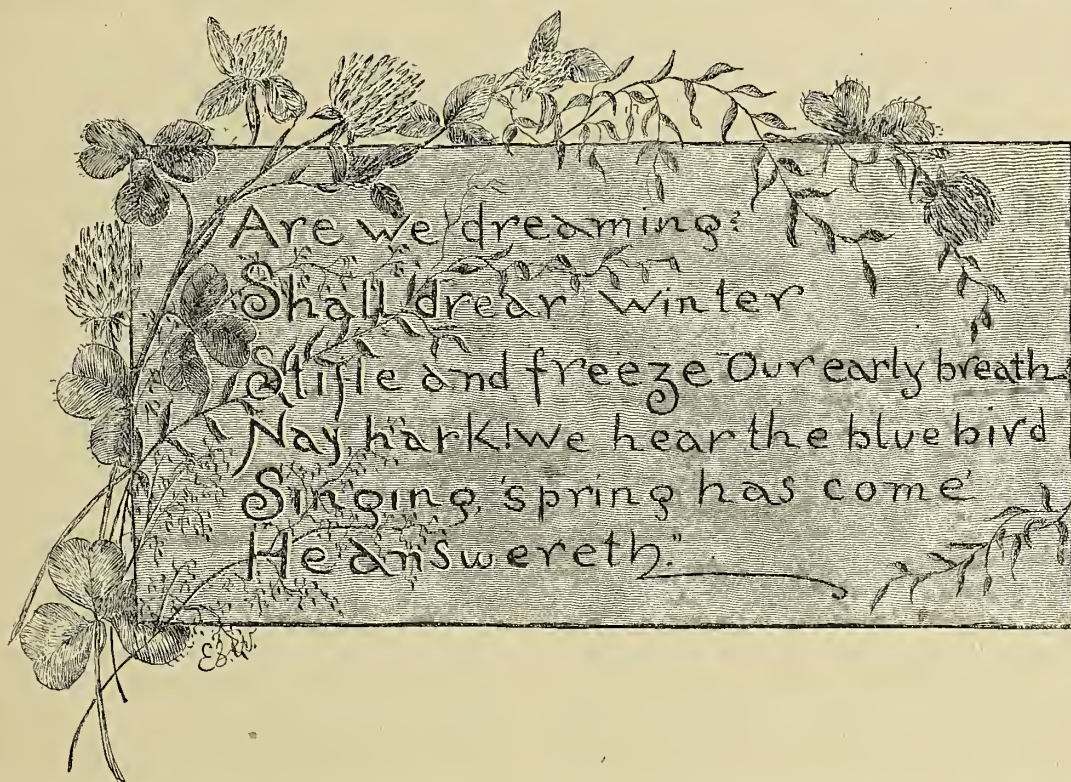 Are we dreaming?
Shall drear winter
Stifle and freeze Our early breath
Nay, hark! We hear the blue bird
Singing, 'spring has come'
He answereth."